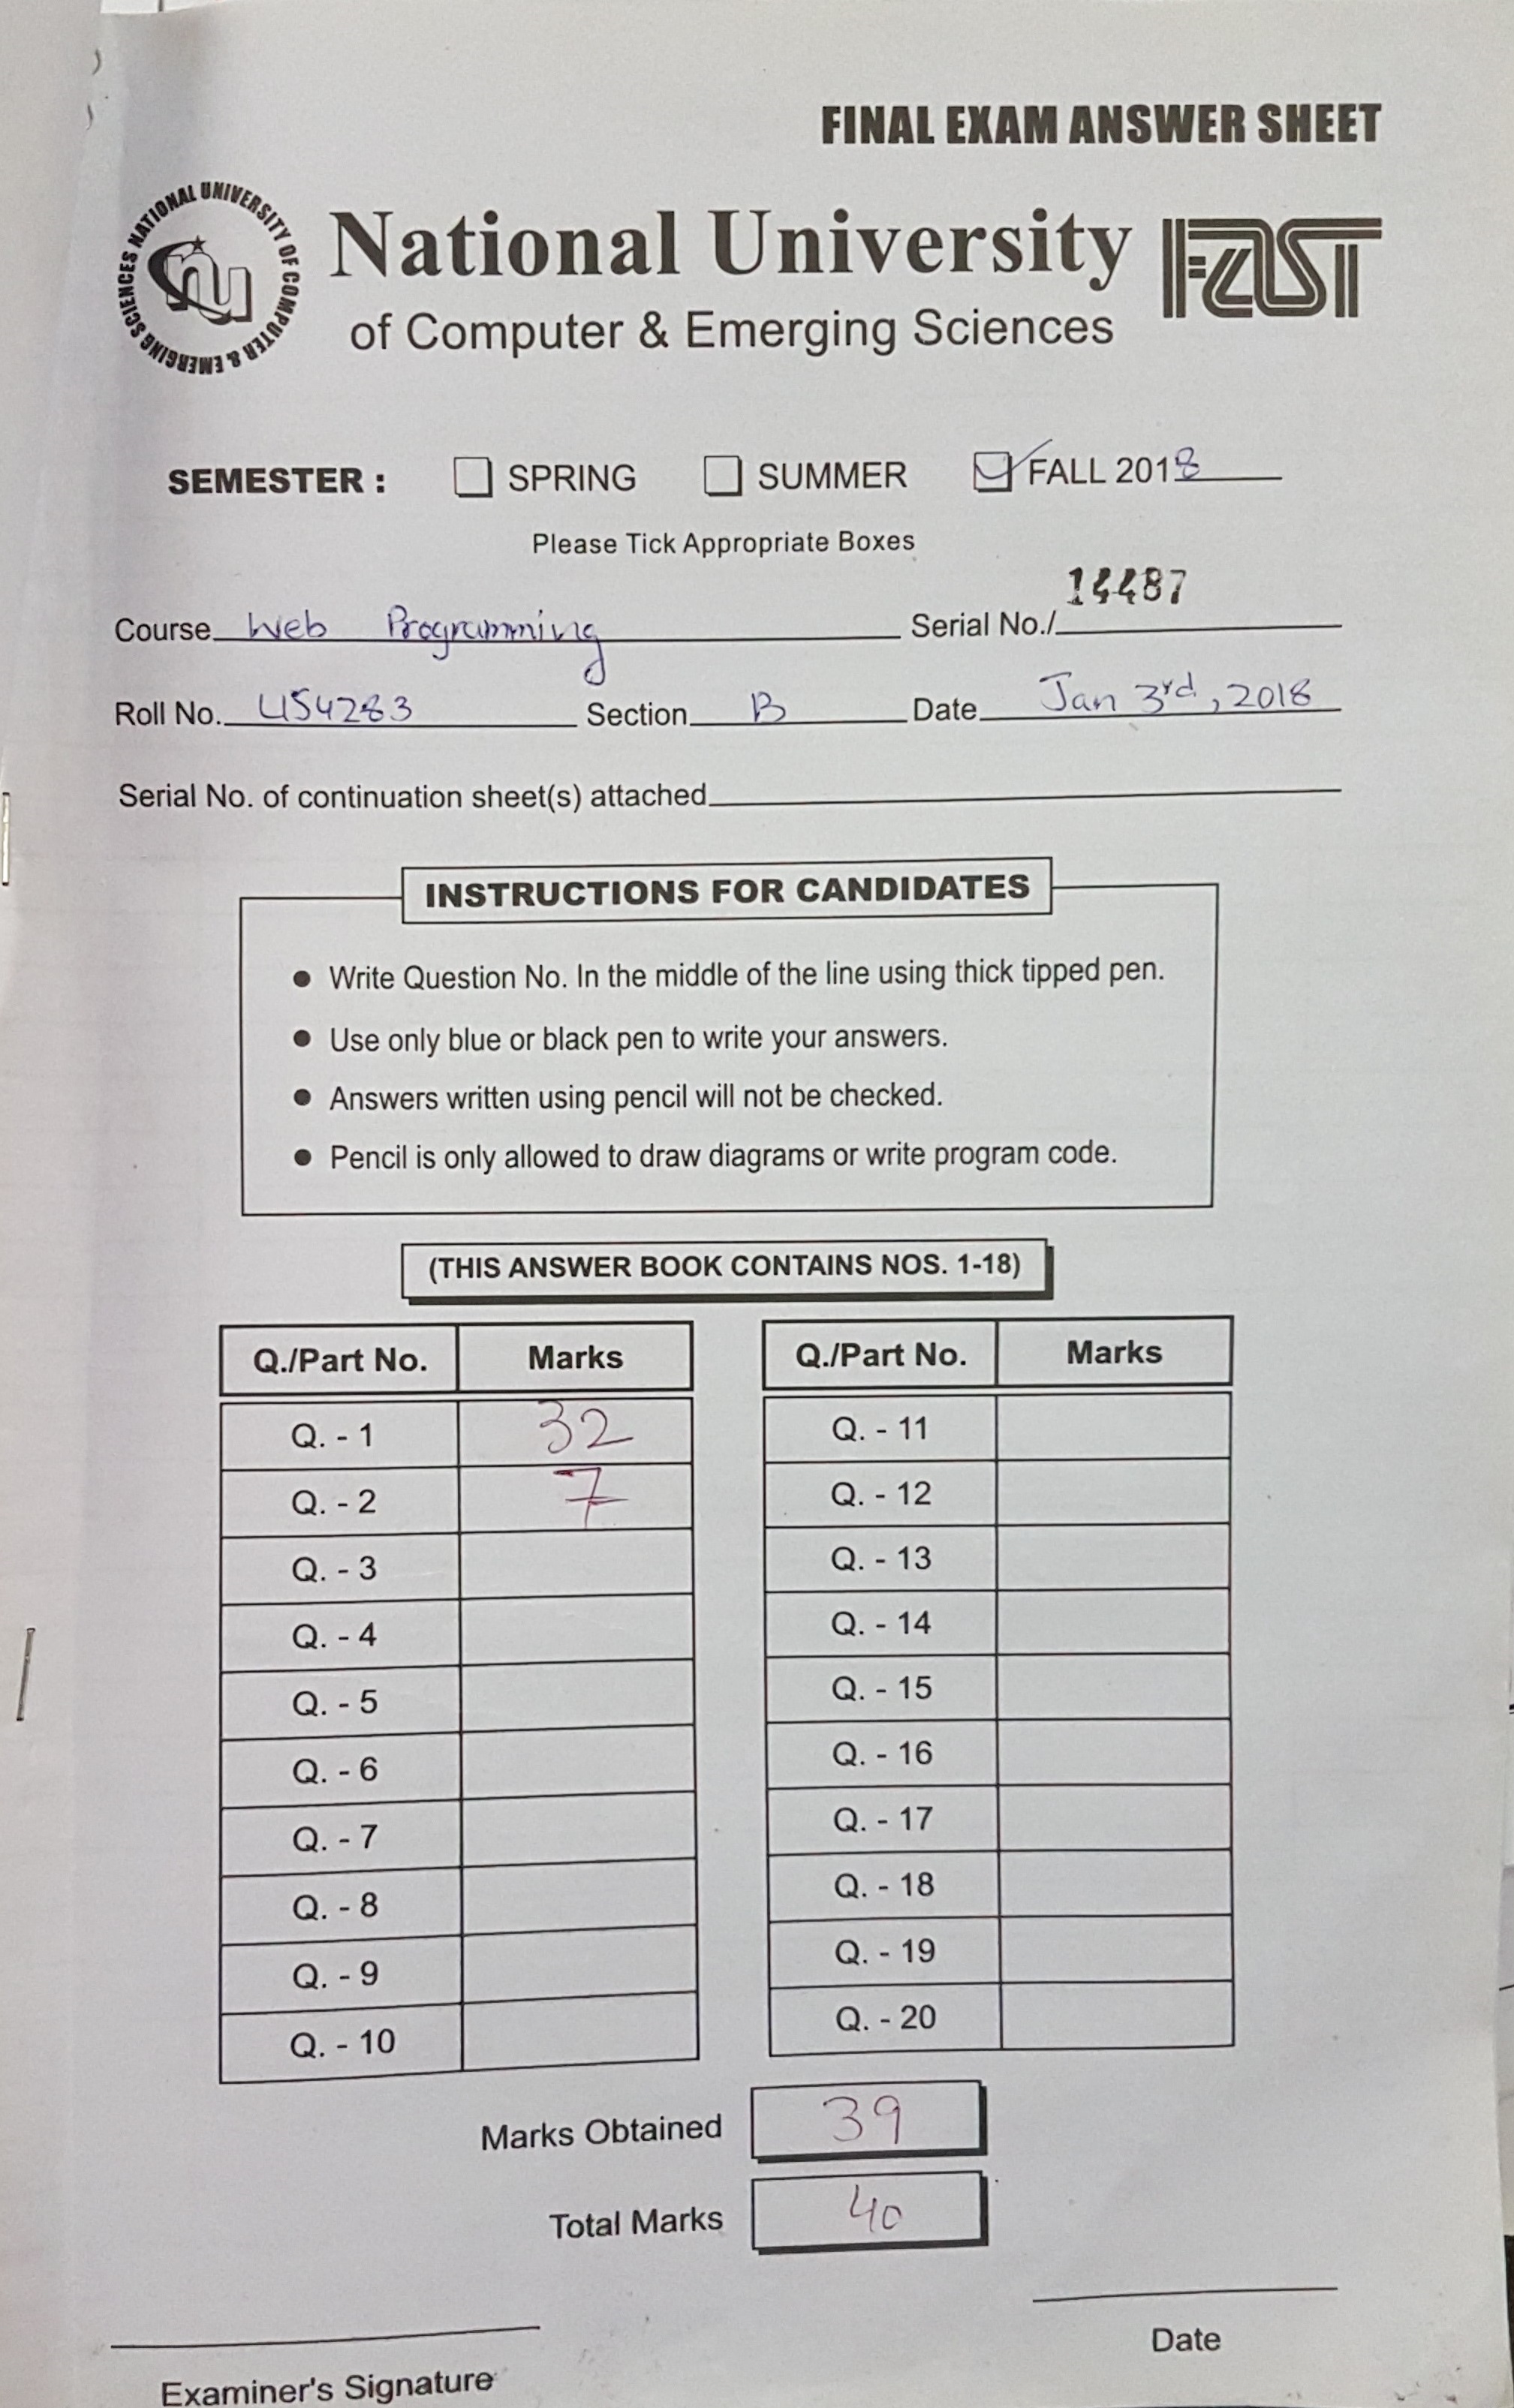 FINAL EXAM ANSWER SHEET
NATIONAL UNIVERSITY OF COMPUTER & EMERGING SCIENCES
nu
National University
FAST
of Computer & Emerging Sciences
SEMESTER : SPRING SUMMER FALL 2018
Please Tick Appropriate Boxes
14487
Course Web Programming Serial No./
Roll No. U54283 Section B Date Jan 3rd, 2018
Serial No. of continuation sheet(s) attached
INSTRUCTIONS FOR CANDIDATES
● Write Question No. In the middle of the line using thick tipped pen.
● Use only blue or black pen to write your answers.
● Answers written using pencil will not be checked.
● Pencil is only allowed to draw diagrams or write program code.
(THIS ANSWER BOOK CONTAINS NOS. 1-18)
Q./Part No. Marks Q./Part No. Marks
Q. - 1 32 Q. - 11
Q. - 2 7 Q. - 12
Q. - 3 Q. - 13
Q. - 4 Q. - 14
Q. - 5 Q. - 15
Q. - 6 Q. - 16
Q. - 7 Q. - 17
Q. - 8 Q. - 18
Q. - 9 Q. - 19
Q. - 10 Q. - 20
Marks Obtained 39
Total Marks 40
Examiner's Signature Date